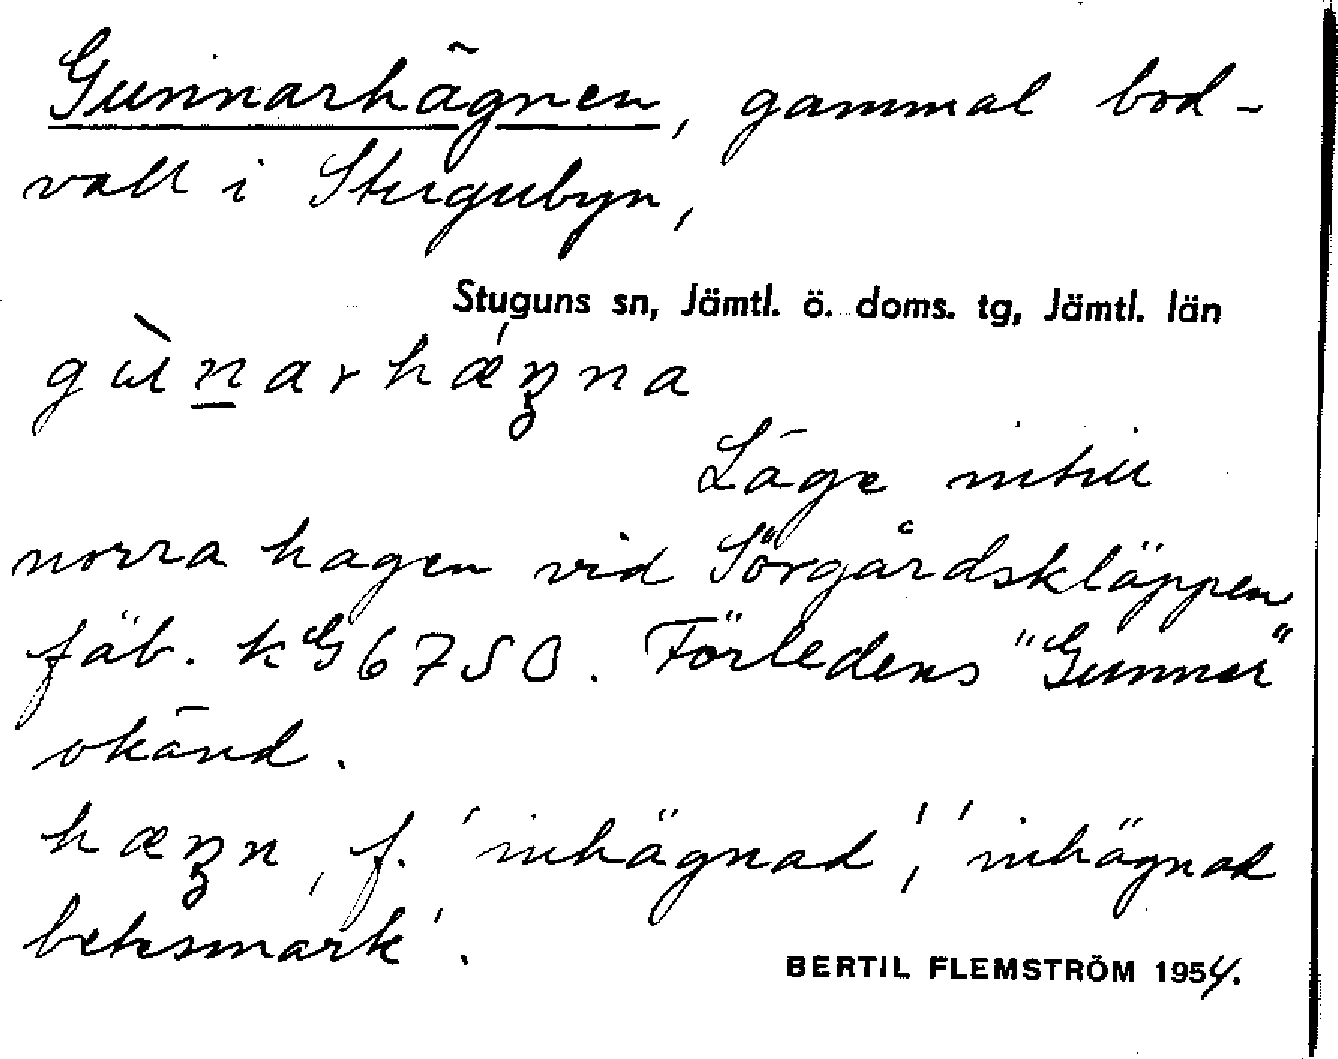 Gunnarhägnen, gammal bod-
vall i Stugubyn,
Stuguns sn, Jämtl. ö. doms. tg, Jämtl. län
Läge intill
norra hagen vid Sörgårdskläppen
fäb. kG 6750. Förledens "Gunnar"
okänd.
f. 'inhägnad', 'inhägnad
betesmark'.
BERTIL FLEMSTRÖM 1954.